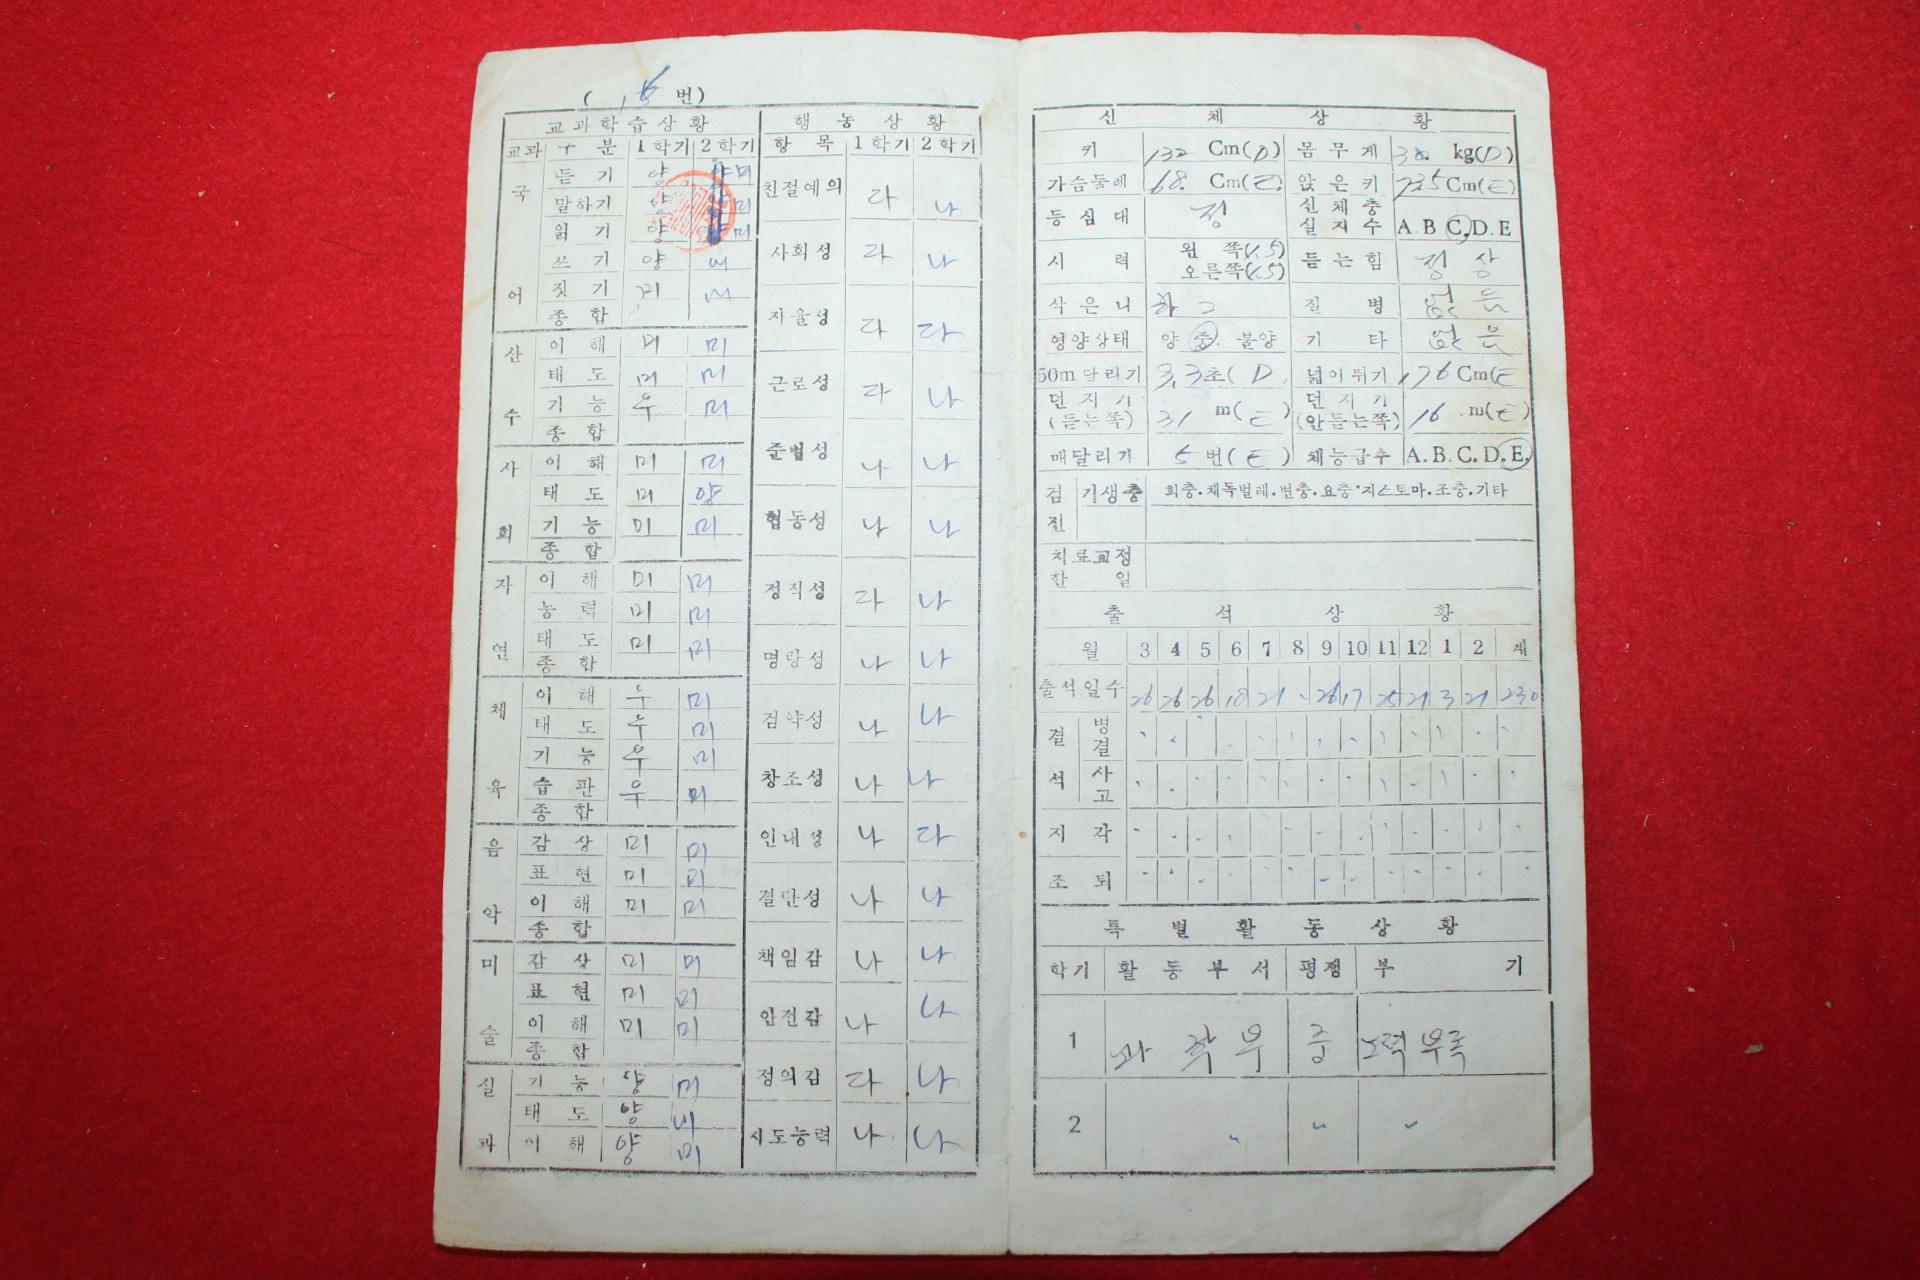 ( 번)
교과학습상황
교과 구분 1학기 2학기
국어
듣기 양 미
말하기 양 미
읽기 양 미
쓰기 양 미
짓기 미 미
종합
산수
이해 미 미
태도 미 미
기능 우 미
종합
사회
이해 미 미
태도 미 양
기능 미 미
종합
자연
이해 미 미
능력 미 미
태도 미 미
종합
체육
이해 우 미
태도 우 미
기능 우 미
습관 우 미
종합
음악
감상 미 미
표현 미 미
이해 미 미
종합
미술
감상 미 미
표현 미 미
이해 미 미
종합
실과
기능 양 미
태도 양 미
이해 양 미
행동상황
항목 1학기 2학기
친절예의 다 나
사회성 다 나
자율성 다 다
근로성 다 나
준법성 나 나
협동성 나 나
정직성 다 나
명랑성 나 나
검약성 나 나
창조성 나 나
인내성 나 다
결단성 나 나
책임감 나 나
안전감 나 나
정의감 다 나
지도능력 나 나
신체상황
키 132 Cm(D) 몸무게 30 kg(D)
가슴둘레 68. Cm(E) 앉은키 73.5 Cm(E)
등심대 정 신체충실지수 A.B.C.D.E
시력 왼쪽(1.5) 오른쪽(1.5) 듣는힘 정상
삭은니 하 2 질병 없음
영양상태 양 중 불양 기타 없음
50m달리기 9.3초(D 넓이뛰기 176 Cm(E
던지기(듣는쪽) 31 m(E) 던지기(안듣는쪽) 16 m(E)
매달리기 5번(E) 체능급수 A.B.C.D.E.
검진 기생충 회충.채독벌레.편충.요충.지스토마.조충.기타
치료교정한일
출석상황
월 3 4 5 6 7 8 9 10 11 12 1 2 계
출석일수 26 26 26 18 21 26 17 25 21 3 21 230
결석 병결
사고
지각
조퇴
특별활동상황
학기 활동부서 평정 부기
1 과학부 중 노력부족
2 〃 〃 〃